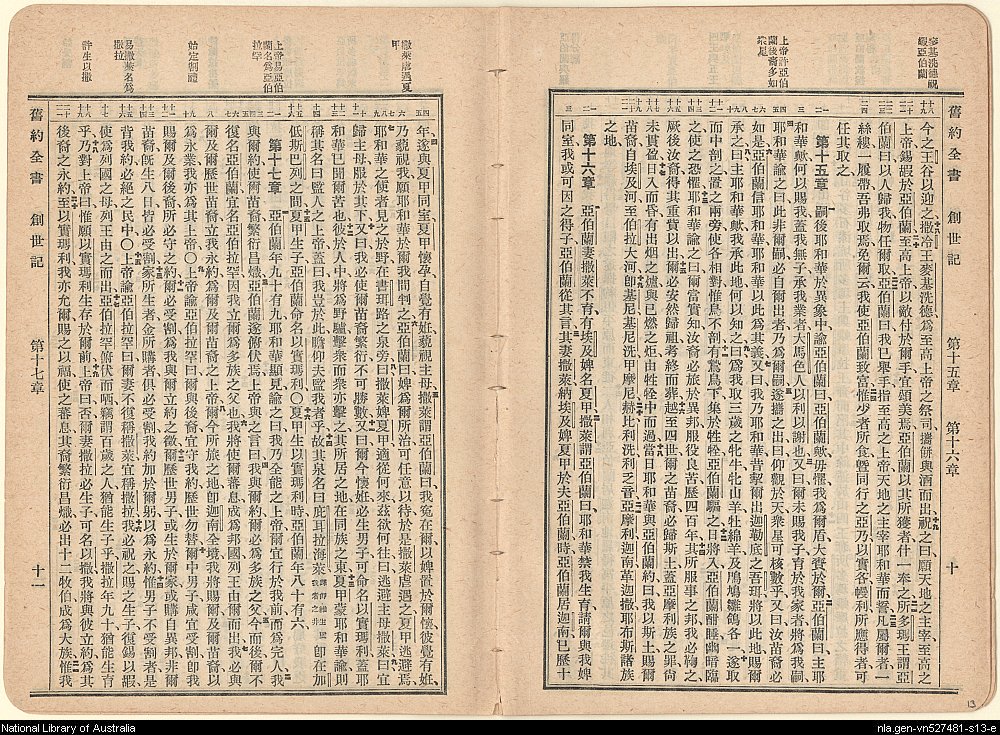 舊約全書 創世記 第十五章 第十六章 十
麥基洗德祝
嘏亞伯蘭
上帝許亞伯
蘭後裔多如
衆星
今之王谷以迎之撒冷王麥基洗德爲至高上帝之祭司攜餅與酒而出祝之曰願天地之主宰至高之
上帝錫嘏於亞伯蘭至高上帝以敵付於爾手宜頌美焉亞伯蘭以其所獲者什一奉之所多瑪王謂亞
伯蘭曰以人歸我物任爾取亞伯蘭曰我已舉手指至高之上帝天地之主宰耶和華而誓凡屬爾者一
絲縷一履帶吾弗取焉免爾云我使亞伯蘭致富惟少者所食曁同行之亞乃以實各幔利所應得者可
任其取之
第十五章 嗣後耶和華於異象中諭亞伯蘭曰亞伯蘭歟毋懼我爲爾盾大賚於爾亞伯蘭曰主耶
和華歟何以賜我蓋我無子承我業者大馬色人以利以謝也又曰爾未賜我子育於我家者將爲我嗣
耶和華諭之曰此非爾嗣必自爾出者乃爲爾嗣遂攜之出曰仰觀於天衆星可核數乎又曰汝苗裔必
如是亞伯蘭信耶和華耶和華以此爲其義又曰我乃耶和華昔挈爾出迦勒底之吾珥將以此地賜爾
承之曰主耶和華歟我承此地何以知之曰爲我取三歲之牝牛牝山羊牡綿羊及鳲鳩雛鴿各一遂取
而中剖之置之兩旁使各相對惟鳥不剖有鷙鳥下集於牲牷亞伯蘭驅之日將入亞伯蘭酣睡幽暗臨
之使之恐懼耶和華諭之曰爾當實知汝裔必旅於異邦服役良苦歷四百年其所服事之國我必鞫之
厥後汝裔得其重貲以出爾必安然歸祖考終而葬越至四世爾之苗裔必歸斯土蓋亞摩利族之罪尙
未貫盈日入而昏有出烟之爐與已燃之炬由牲牷中而過當日耶和華與亞伯蘭約曰我以斯土賜爾
苗裔自埃及河至伯拉大河卽基尼基尼洗甲摩尼赫比利洗利乏音亞摩利迦南革迦撒耶布斯諸族
之地
第十六章 亞伯蘭妻撒萊不育有埃及婢名夏甲撒萊謂亞伯蘭曰耶和華禁我生育請爾與我婢
同室我或可因之得子亞伯蘭從其言其妻撒萊納埃及婢夏甲於夫亞伯蘭時亞伯蘭居迦南已歷十
撒萊虐遇夏
甲
上帝易亞伯
蘭名爲亞伯
拉罕
始定割禮
易撒萊名爲
撒拉
許生以撒
年遂與夏甲同室夏甲懷孕自覺有姙藐視主母撒萊謂亞伯蘭曰我寃在爾以婢置於爾懷彼覺有姙
乃藐視我願耶和華於爾我間判之亞伯蘭曰婢爲爾所治可任意以待於是撒萊虐遇之夏甲逃避焉
耶和華之使者見之於野在書珥路之泉旁曰撒萊婢夏甲歟適從何來茲欲何往曰逃避主母撒萊曰宜
歸主母服於其下又曰我必衍爾苗裔不可勝數又曰爾今懷妊必生男子可命名以實瑪利蓋耶
和華已聞爾苦也彼於人中將爲野驢擊衆而衆亦擊之其所居之地在同族之東夏甲蒙耶和華諭則
稱其名曰監人之上帝蓋曰我豈於此瞻仰夫監我者乎故其泉名曰庇耳拉海萊卽在加
低斯巴列之間夏甲生子亞伯蘭命名以實瑪利〇夏甲生以實瑪利時亞伯蘭年八十有六
第十七章 亞伯蘭年九十有九耶和華顯見諭之曰我乃全能之上帝爾宜行於我前而爲完人我
與爾約使爾苗裔繁衍昌熾亞伯蘭遂俯伏焉上帝與之言曰我與爾約爾必爲多族之父今而後爾不
復名亞伯蘭宜名亞伯拉罕因我立爾爲多族之父也我將使爾蕃息成爲邦國列王由爾而出我必與
爾及爾歷世苗裔立我永約爲爾及爾苗裔之上帝爾今所旅之地卽迦南全境我將賜爾及爾苗裔以
爲永業我亦爲其上帝〇上帝諭亞伯拉罕曰爾與後裔宜守我約歷世勿替爾中男子咸宜受割卽我
賜爾及爾後裔所必守之約爾必受割爲我與爾立約之徵爾歷世男子或生於爾家或購自異邦非爾
苗裔旣生八日皆必受割家所生者金所購者俱必受割我約加於爾躬以爲永約惟男子不受割者是
背我約必絕之民中〇上帝諭亞伯拉罕曰爾妻不復稱撒萊宜稱撒拉我必祝之賜之生子復錫以嘏
使爲列國之母列王由之而出亞伯拉罕俯伏而哂竊謂百歲之人猶能生子乎撒拉年九十猶能生育
乎乃對上帝曰惟願以實瑪利生存於爾前上帝曰否爾妻撒拉必生子可名以撒我將與彼立約爲其
後裔之永約至以實瑪利我亦允爾賜之以福使之蕃息其裔繁衍昌熾必出十二牧伯成爲大族惟我
舊約全書 創世記 第十七章 十一
13
National Library of Australia
nla.gen-vn527481-s13-e